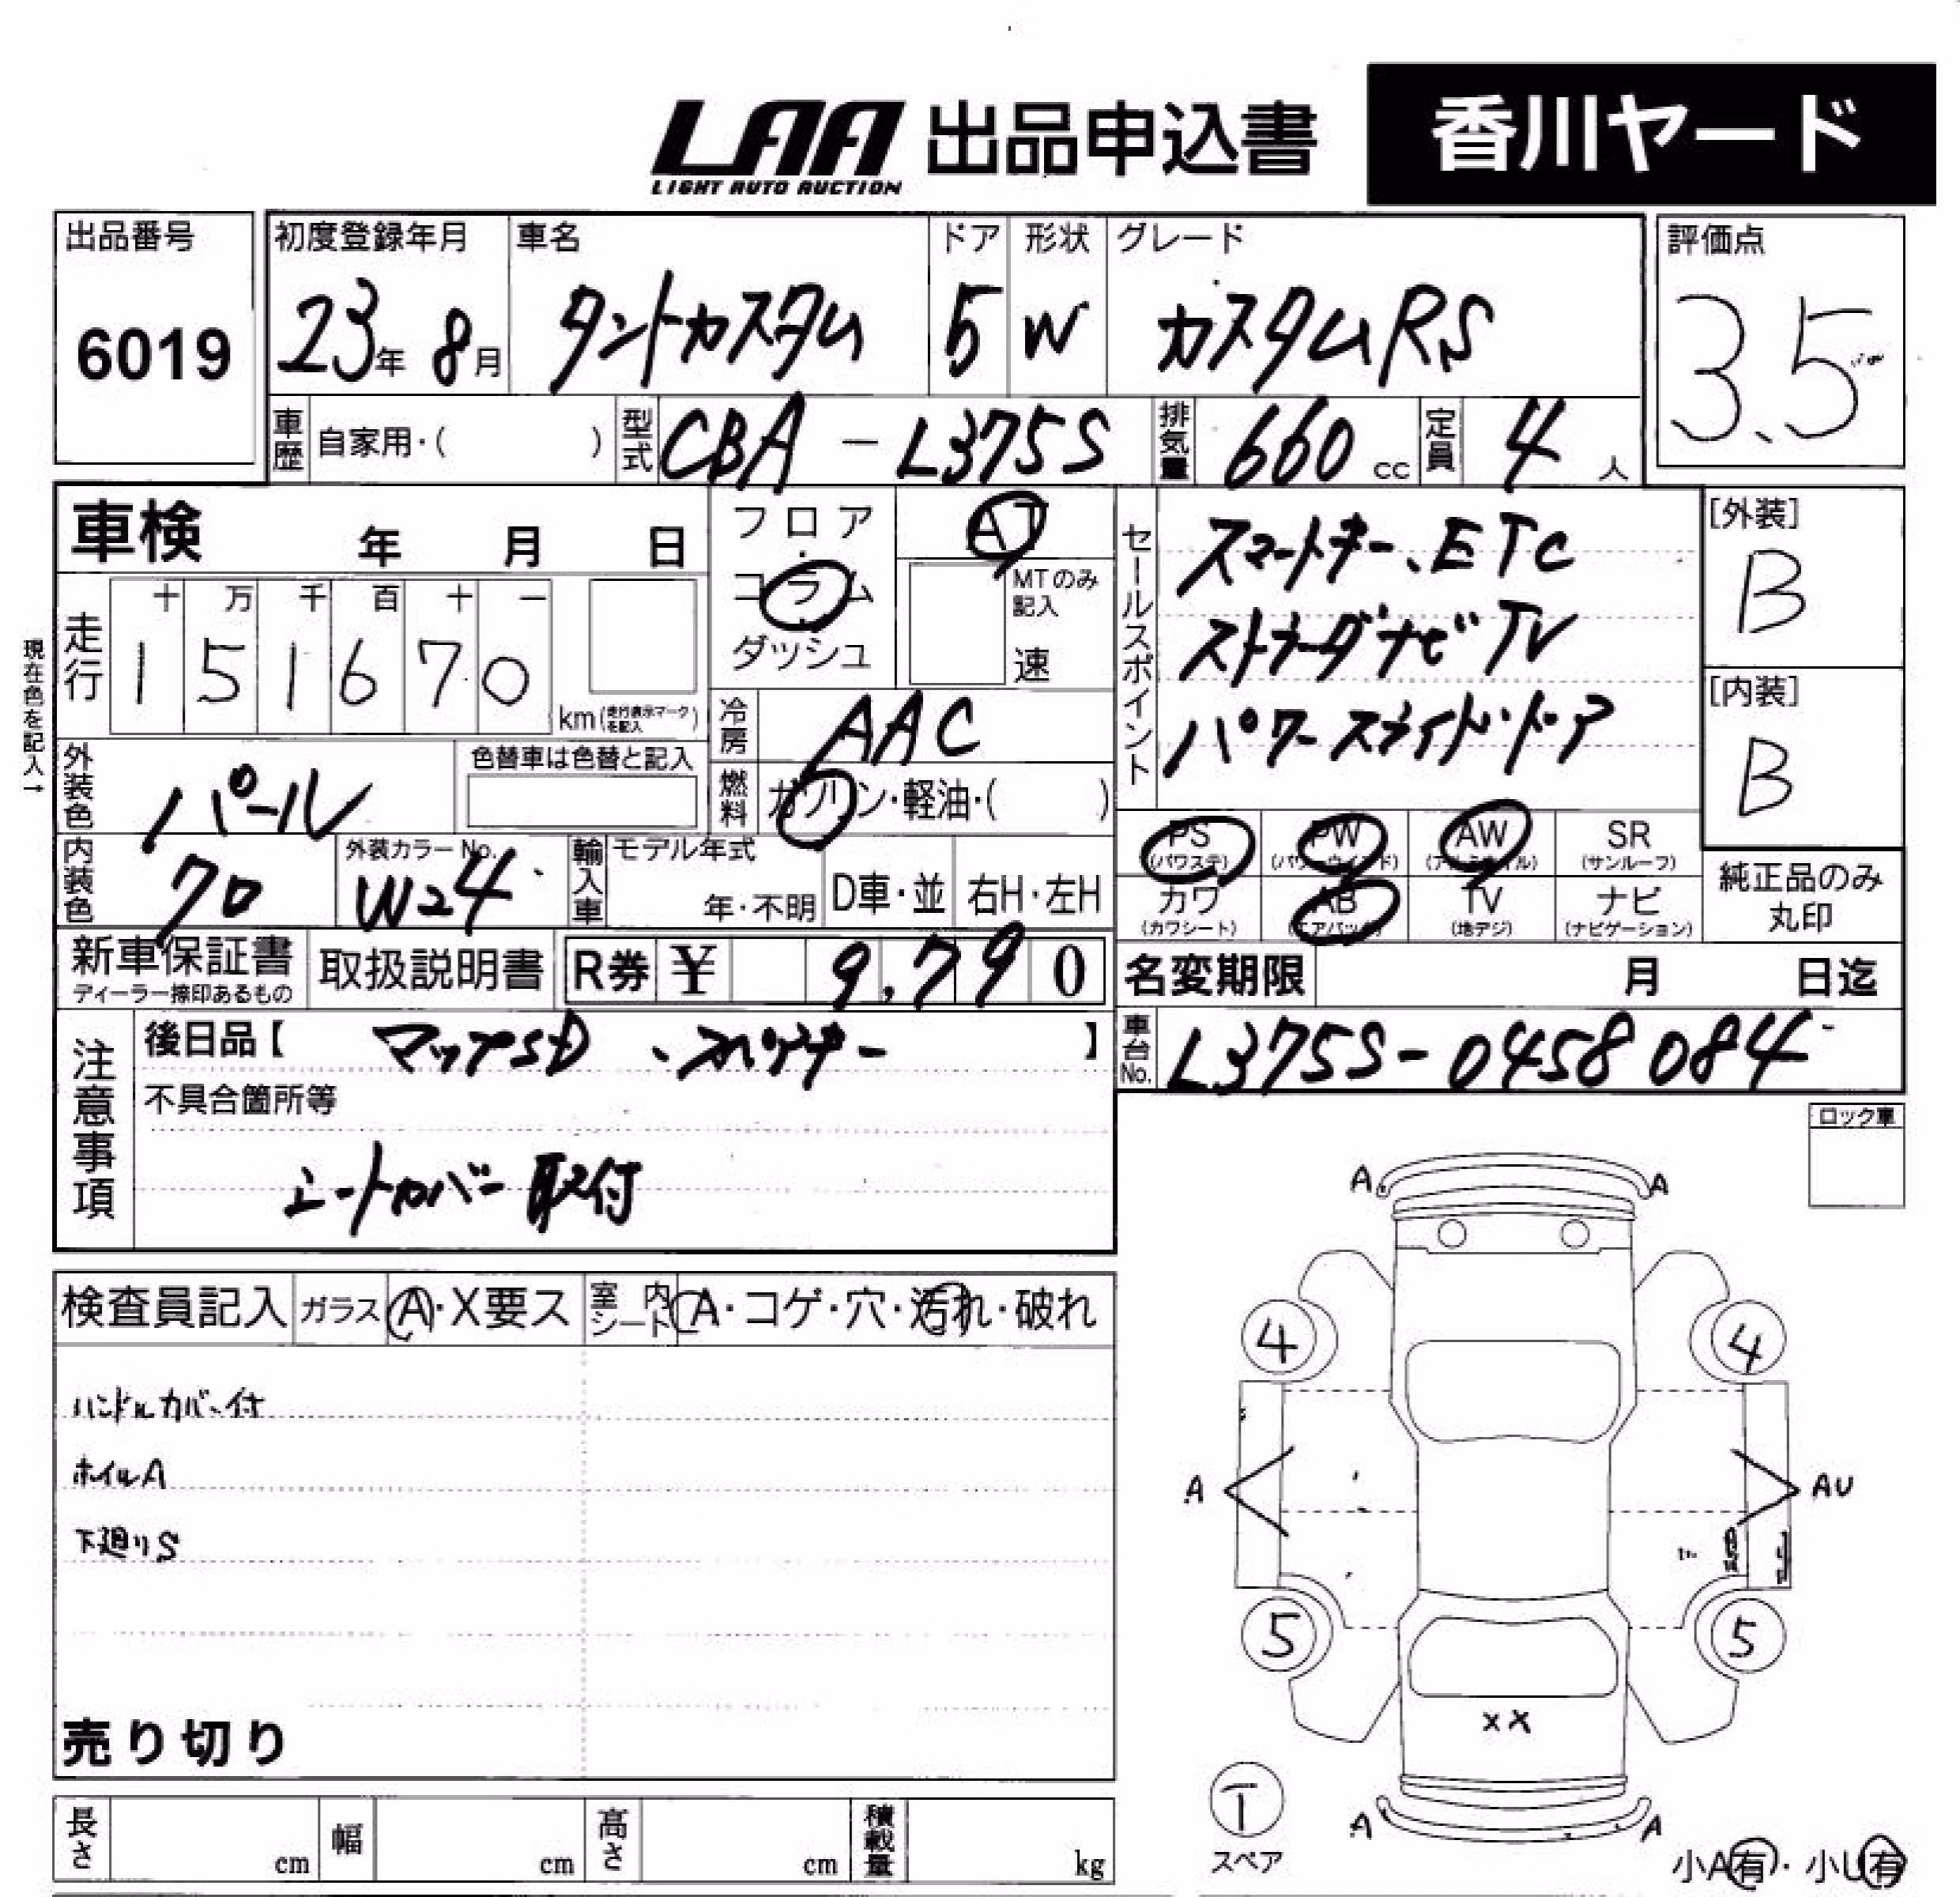 LAA 出品申込書 香川ヤード
LIGHT AUTO AUCTION
出品番号 初度登録年月 車名 ドア 形状 グレード 評価点
6019 23年 8月 タントカスタム 5 W カスタムRS 3.5
車歴 自家用・( ) 型式 CBA-L375S 排気量 660cc 定員 4人
車検 年 月 日
フロア・コラム・ダッシュ
AT
MTのみ記入
速
セールスポイント
スマートキー、ETC
ストラーダナビTV
パワースライドドア
[外装]
B
[内装]
B
現在色を記入→
走行 十 万 千 百 十 一
1 5 1 6 7 0 km(走行表示マークを記入)
冷房 AAC
外装色 パール 色替車は色替と記入
燃料 ガソリン・軽油・( )
PS (パワステ) PW (パワーウインド) AW (アルミホイル) SR (サンルーフ)
カワ (カワシート) AB (エアバッグ) TV (地デジ) ナビ (ナビゲーション)
純正品のみ丸印
内装色 クロ 外装カラーNo. W24 輸入車 モデル年式 年・不明 D車・並 右H・左H
新車保証書 ディーラー捺印あるもの 取扱説明書 R券 ¥ 9,790
名変期限 月 日迄
注意事項
後日品【 マップSD、スペアキー 】
車台No. L375S-0458084
不具合箇所等
シートカバー取付
ロック車
検査員記入 ガラス A・X要ス 室内シート A・コゲ・穴・汚れ・破れ
ハンドルカバー付
ホイルA
下廻りS
売り切り
A A
4 4
A AU
5 5
XX
A A
T
スペア
小A有・小U有
長さ cm 幅 cm 高さ cm 積載量 kg